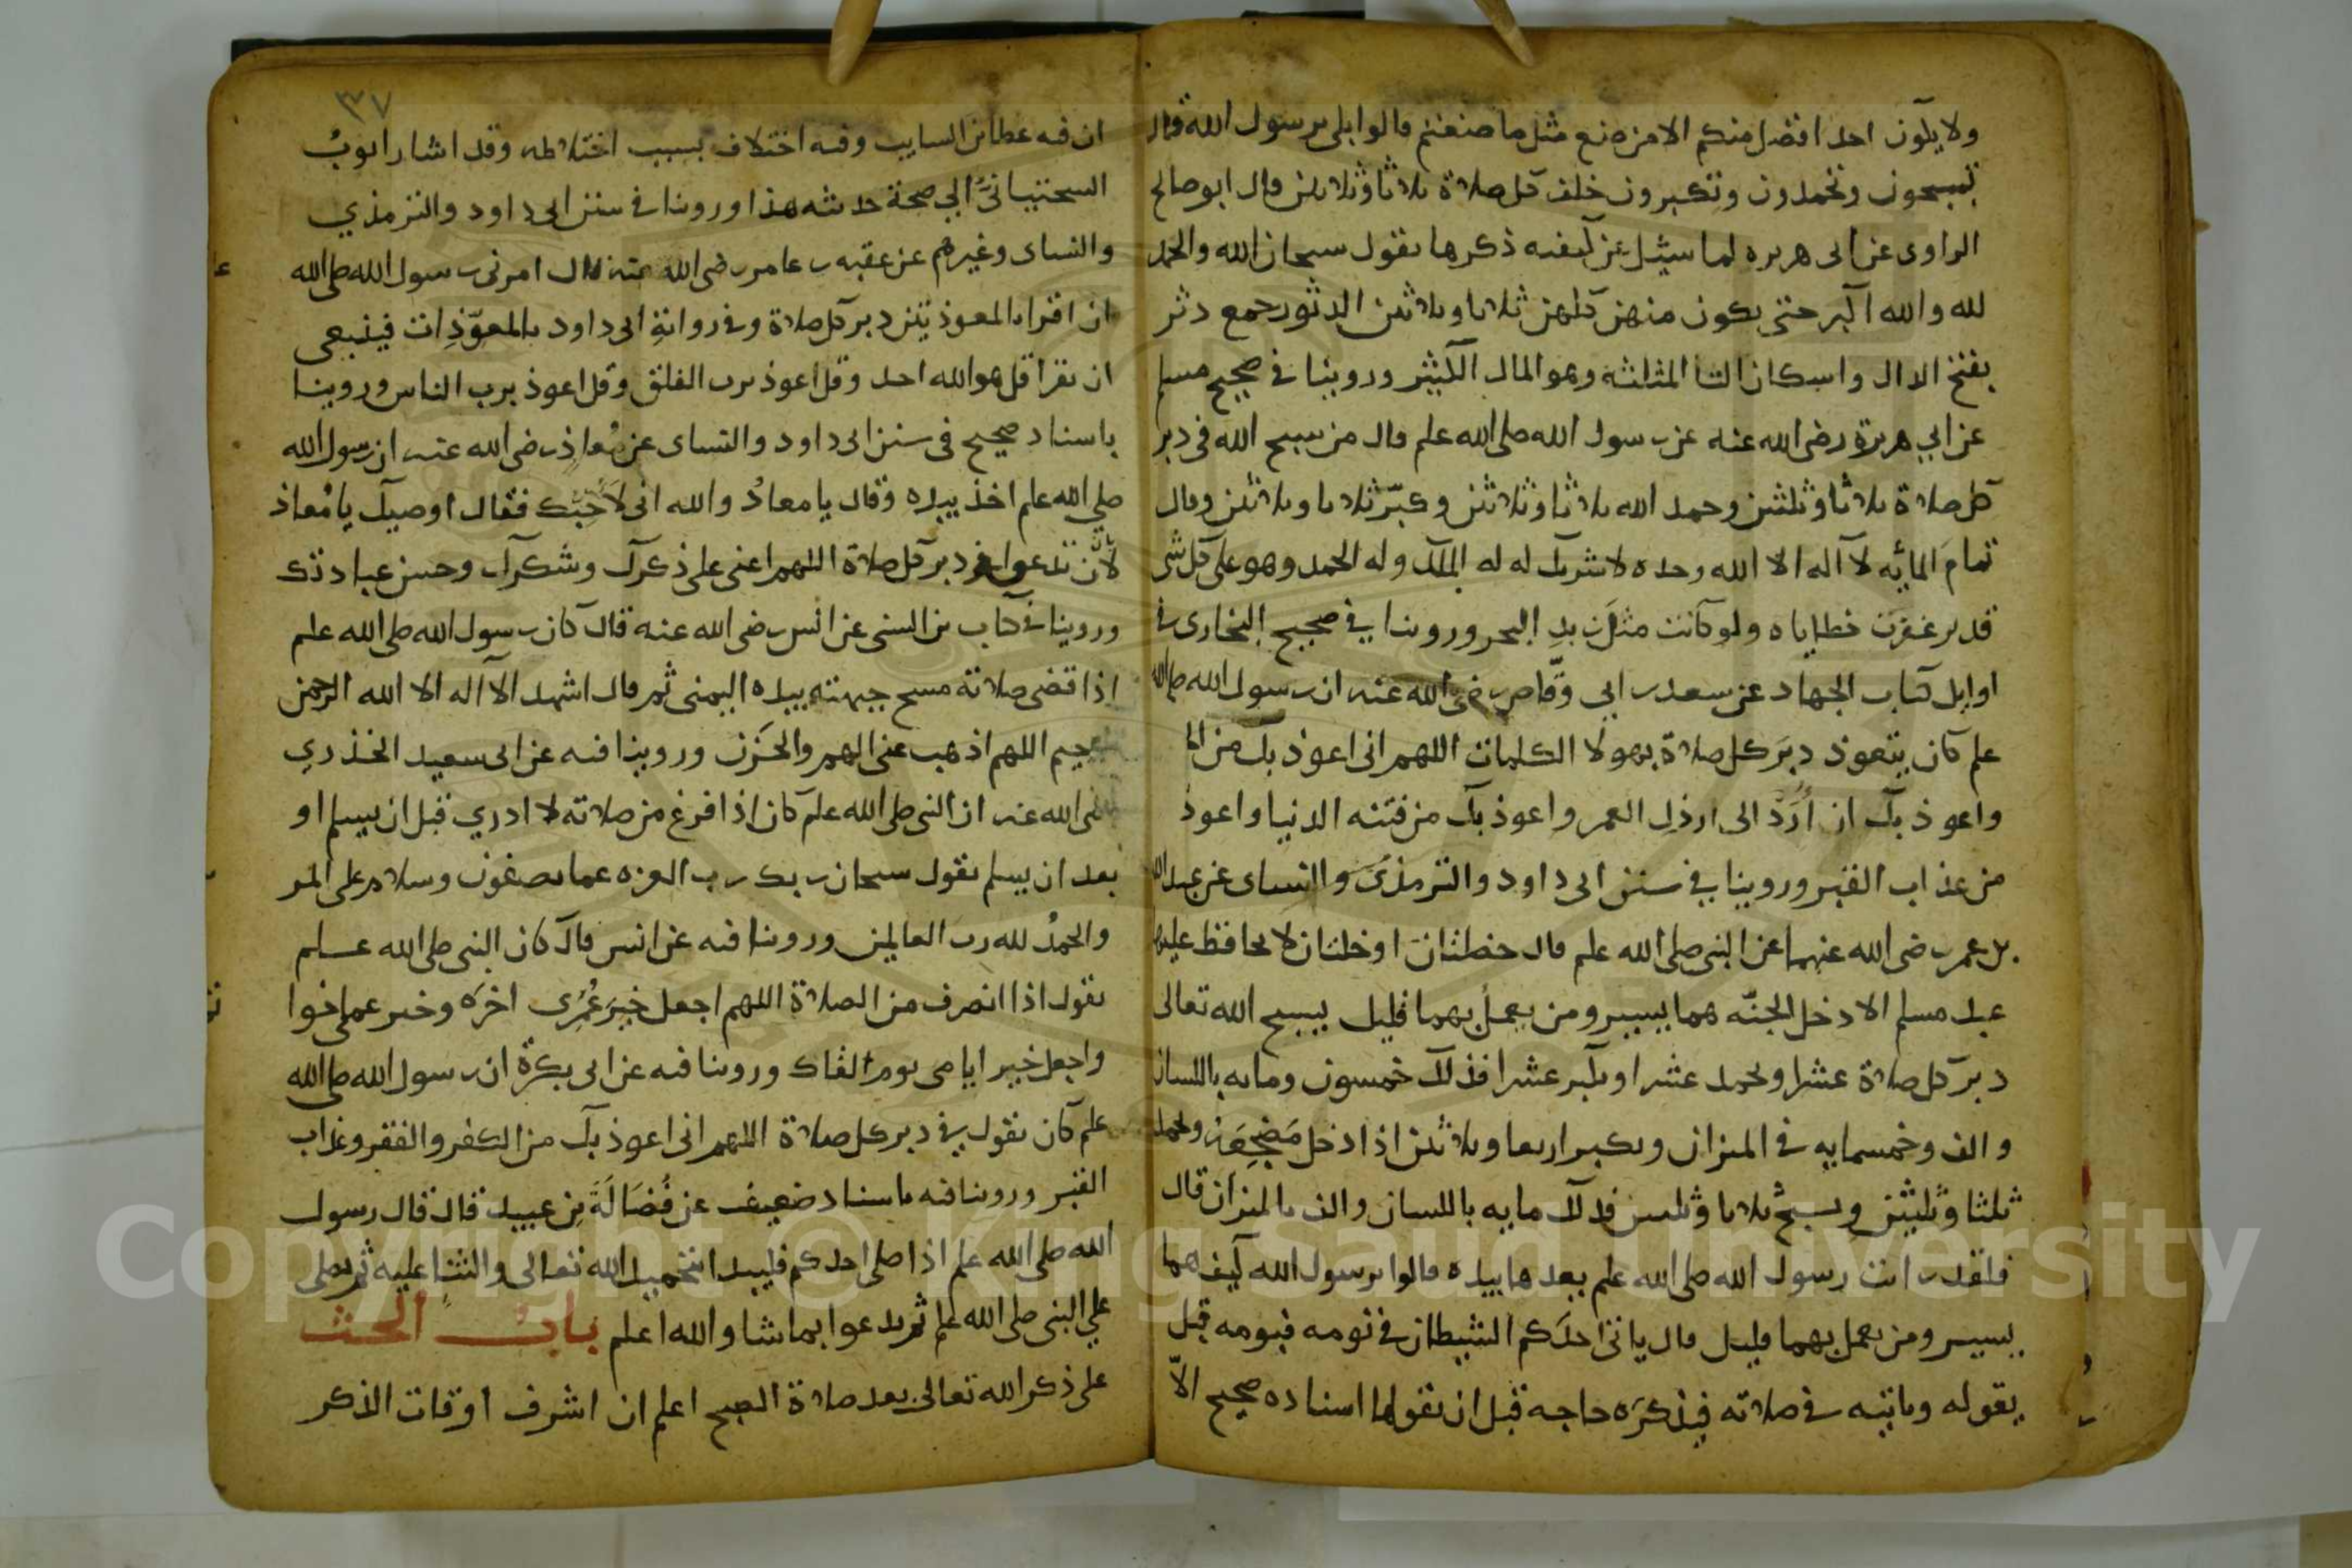 ولا يكون احد افضل منكم الا من صنع مثل ما صنعتم قالوا بلى يرسول الله قال
تسبحون وتحمدون وتكبرون خلف كل صلاة ثلاثا وثلاثين قال ابو صالح
الراوى عن ابى هريره لما سيئل عن كيفيه ذكرها يقول سبحان الله والحمد
لله والله اكبر حتى يكون منهن كلهن ثلاثا وثلاثين الدثور جمع دثر
بفتح الدال واسكان الثا المثلثه وهو المال الكثير وروينا في صحيح مسلم
عن ابي هريرة رضى الله عنه عن رسول الله صلى الله علم قال من سبح الله فى دبر
كل صلاة ثلاثا وثلثين وحمد الله ثلاثا وثلاثين وكبّر ثلاثا وثلاثين وقال
تمامَ المائيه لا اله الا الله وحده لا شريك له له الملك وله الحمد وهو على كل شى
قدير غفرت خطاياه ولو كانت مثل زبدِ البحر وروينا في صحيح البخارى في
اوايل كتاب الجهاد عن سعد بن ابي وقّاص رضى الله عنه ان رسول الله صلى الله
علم كان يتعوذ دبرَ كل صلاة بهولا الكلمات اللهم انى اعوذ بك من
واعوذ بك ان اُرَدَّ الى ارذلِ العمر واعوذ بك من فتنه الدنيا واعوذ
من عذاب القبر وروينا في سنن ابى داود والترمذى والنساى عن عبد الله
بن عمر رضى الله عنهما عن النبى صلى الله علم قال خصلتان او خلتان لا يحافظ عليهما
عبد مسلم الا دخل الجنّه هما يسير ومن يعملُ بهما قليل يسبح الله تعالى
دبر كل صلاة عشرا ويحمد عشرا ويكبر عشرا فذلك خمسون ومايه باللسان
والف وخمسمايه في الميزان ويكبر اربعا وثلاثين اذا دخل مَضجِعَه ويحمد
ثلثا وثلثين ويسبح ثلاثا وثلثين فذلك مايه باللسان والف بالميزان قال
فلقد رايت رسول الله صلى الله علم يعدها بيده قالوا يرسول الله كيف هما
يسير ومن يعمل بهما قليل قال ياتى احدَكم الشيطان في نومه فينومه قبل
يقوله وياتيه في صلاته فيذكرَه حاجه قبل ان يقولها اسناده صحيح الاّ
٣٧
ان فيه عطا بن السايب وفيه اختلاف بسبب اختلاطه وقد اشار ايوبُ
السختيانىُّ الي صحة حديثه هذا وروينا في سنن ابى داود والترمذي
والنساى وغيرهم عن عقبه بن عامر رضى الله عنه قال امرنى رسول الله صلى الله
ان اقرا بالمعوذتين دبر كل صلاة وفي روايةِ ابى داود بالمعوّذِات فينبغى
ان يقرا قل هو الله احد وقل اعوذ برب الفلق وقل اعوذ برب الناس وروينا
باسناد صحيح فى سنن ابى داود والنساى عن مُعاذ رضى الله عنه ان رسول الله
صلى الله علم اخذ بيده وقال يا معاذُ والله انى لاُحِبّك فقال اوصيك يا مُعاذ
لا تدعوا في دبر كل صلاة اللهم اعنى على ذكرك وشكرك وحسن عبادتك
وروينا في كتاب بن السنى عن انس رضى الله عنه قال كان رسول الله صلى الله علم
اذا قضى صلاته مسح جبهته بيده اليمنى ثم قال اشهد الا اله الا الله الرحمن
الرحيم اللهم اذهب عنى الهم والحَزن وروينا فيه عن ابى سعيد الخذري
رضى الله عنه ان النبى صلى الله علم كان اذا فرغ من صلاته لا ادري قبل ان يسلم او
بعد ان يسلم يقول سبحان ربك رب العزه عما يصفون وسلام على المر
والحمدُ لله رب العالمين وروينا فيه عن انس قال كان النبى صلى الله عسلم
يقول اذا انصرف من الصلاة اللهم اجعل خيرَ عُمُرِى اخرَه وخير عملى خوا
واجعل خير ايامى يوم القاك وروينا فيه عن ابى بكرة ان رسول الله صلى الله
علم كان يقول في دبر كل صلاة اللهم انى اعوذ بك من الكفر والفقر وعذاب
القبر وروينا فيه باسناد ضعيف عن فُضَالَةَ بن عبيد قال قال رسول
الله صلى الله علم اذا صلى احدكم فليبدا بتحميد الله تعالى والثنا عليه ثم يصلى
علي النبى صلى الله علم ثم يدعوا بما شا والله اعلم بابُ الحث
على ذكر الله تعالى بعد صلاة الصبح اعلم ان اشرف اوقات الذكر
Copyright © King Saud University